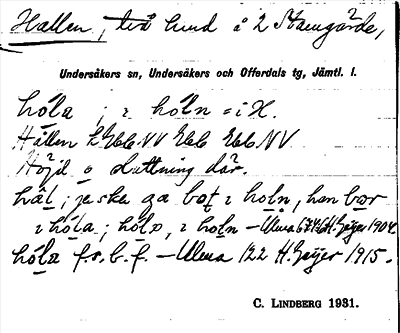 Hallen, två hund å 2 Stamgärde,
Undersåkers sn, Undersåkers och Offerdals tg, Jämtl. l.
hóla; ı hóln = i H.
Hållen NV NV
Höjd o sluttning där.
hål; je ska ga bot ı holn, han bor
ı hóla; hólo, ı holn – Ulma 6746 H. Geijer 1904.
hóla f.s.b.f. – Ulma 122 H. Geijer 1915.
C. LINDBERG 1931.